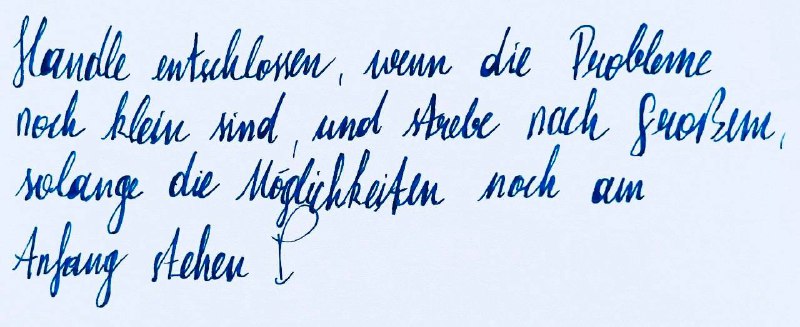 Handle entschlossen, wenn die Probleme
noch klein sind, und strebe nach Großem,
solange die Möglichkeiten noch am
Anfang stehen!